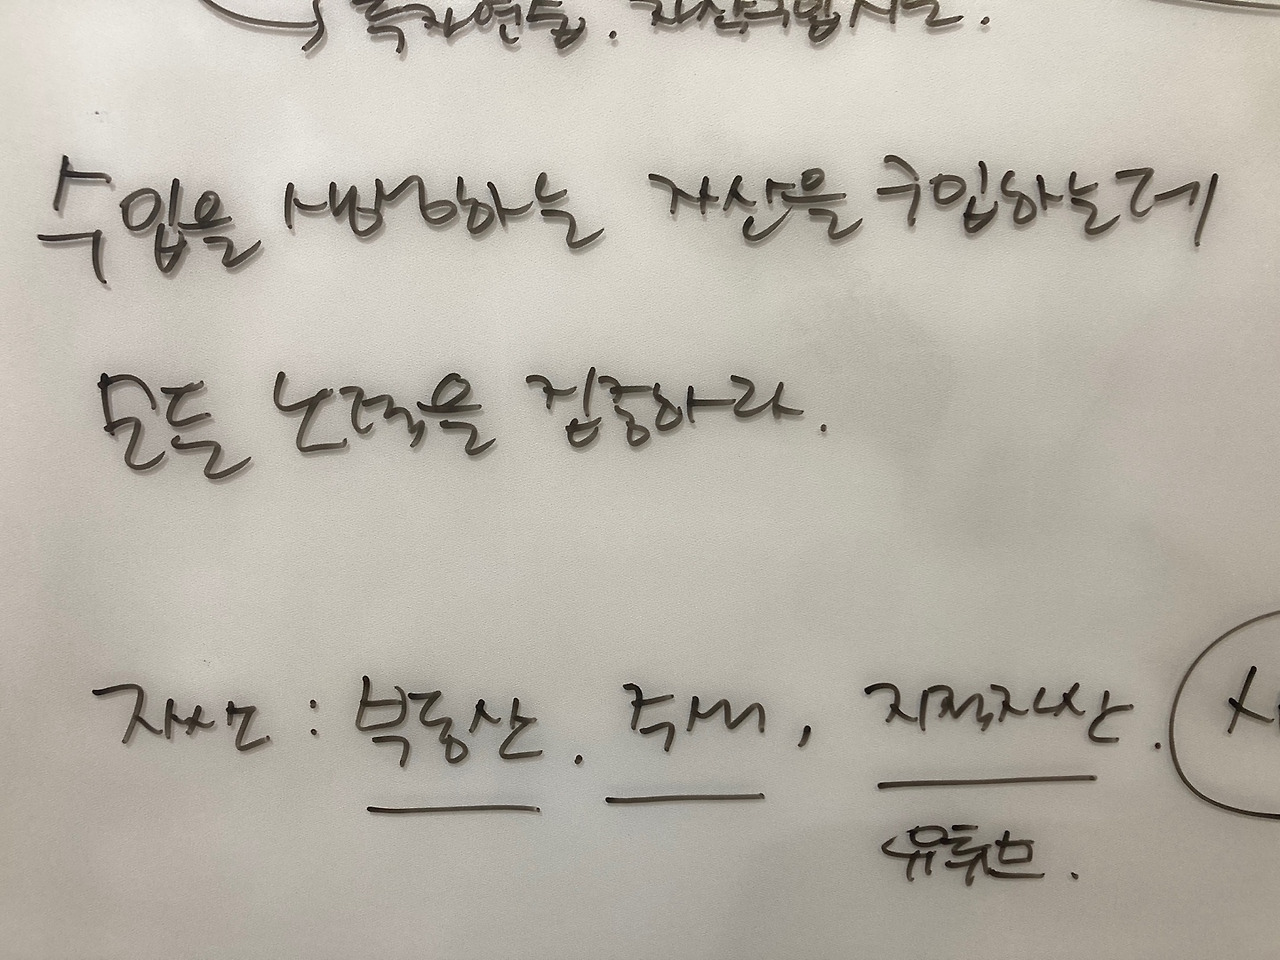 수입을 생성하는 자산을 구입하는데
모든 노력을 집중하라.
자산 : 부동산. 주식, 지적자산.
유튜브.